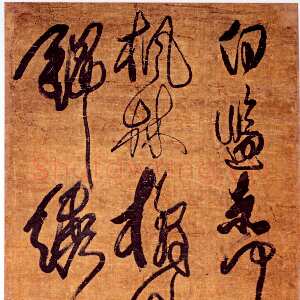 白鹽赤甲
楓林橘
錦繡